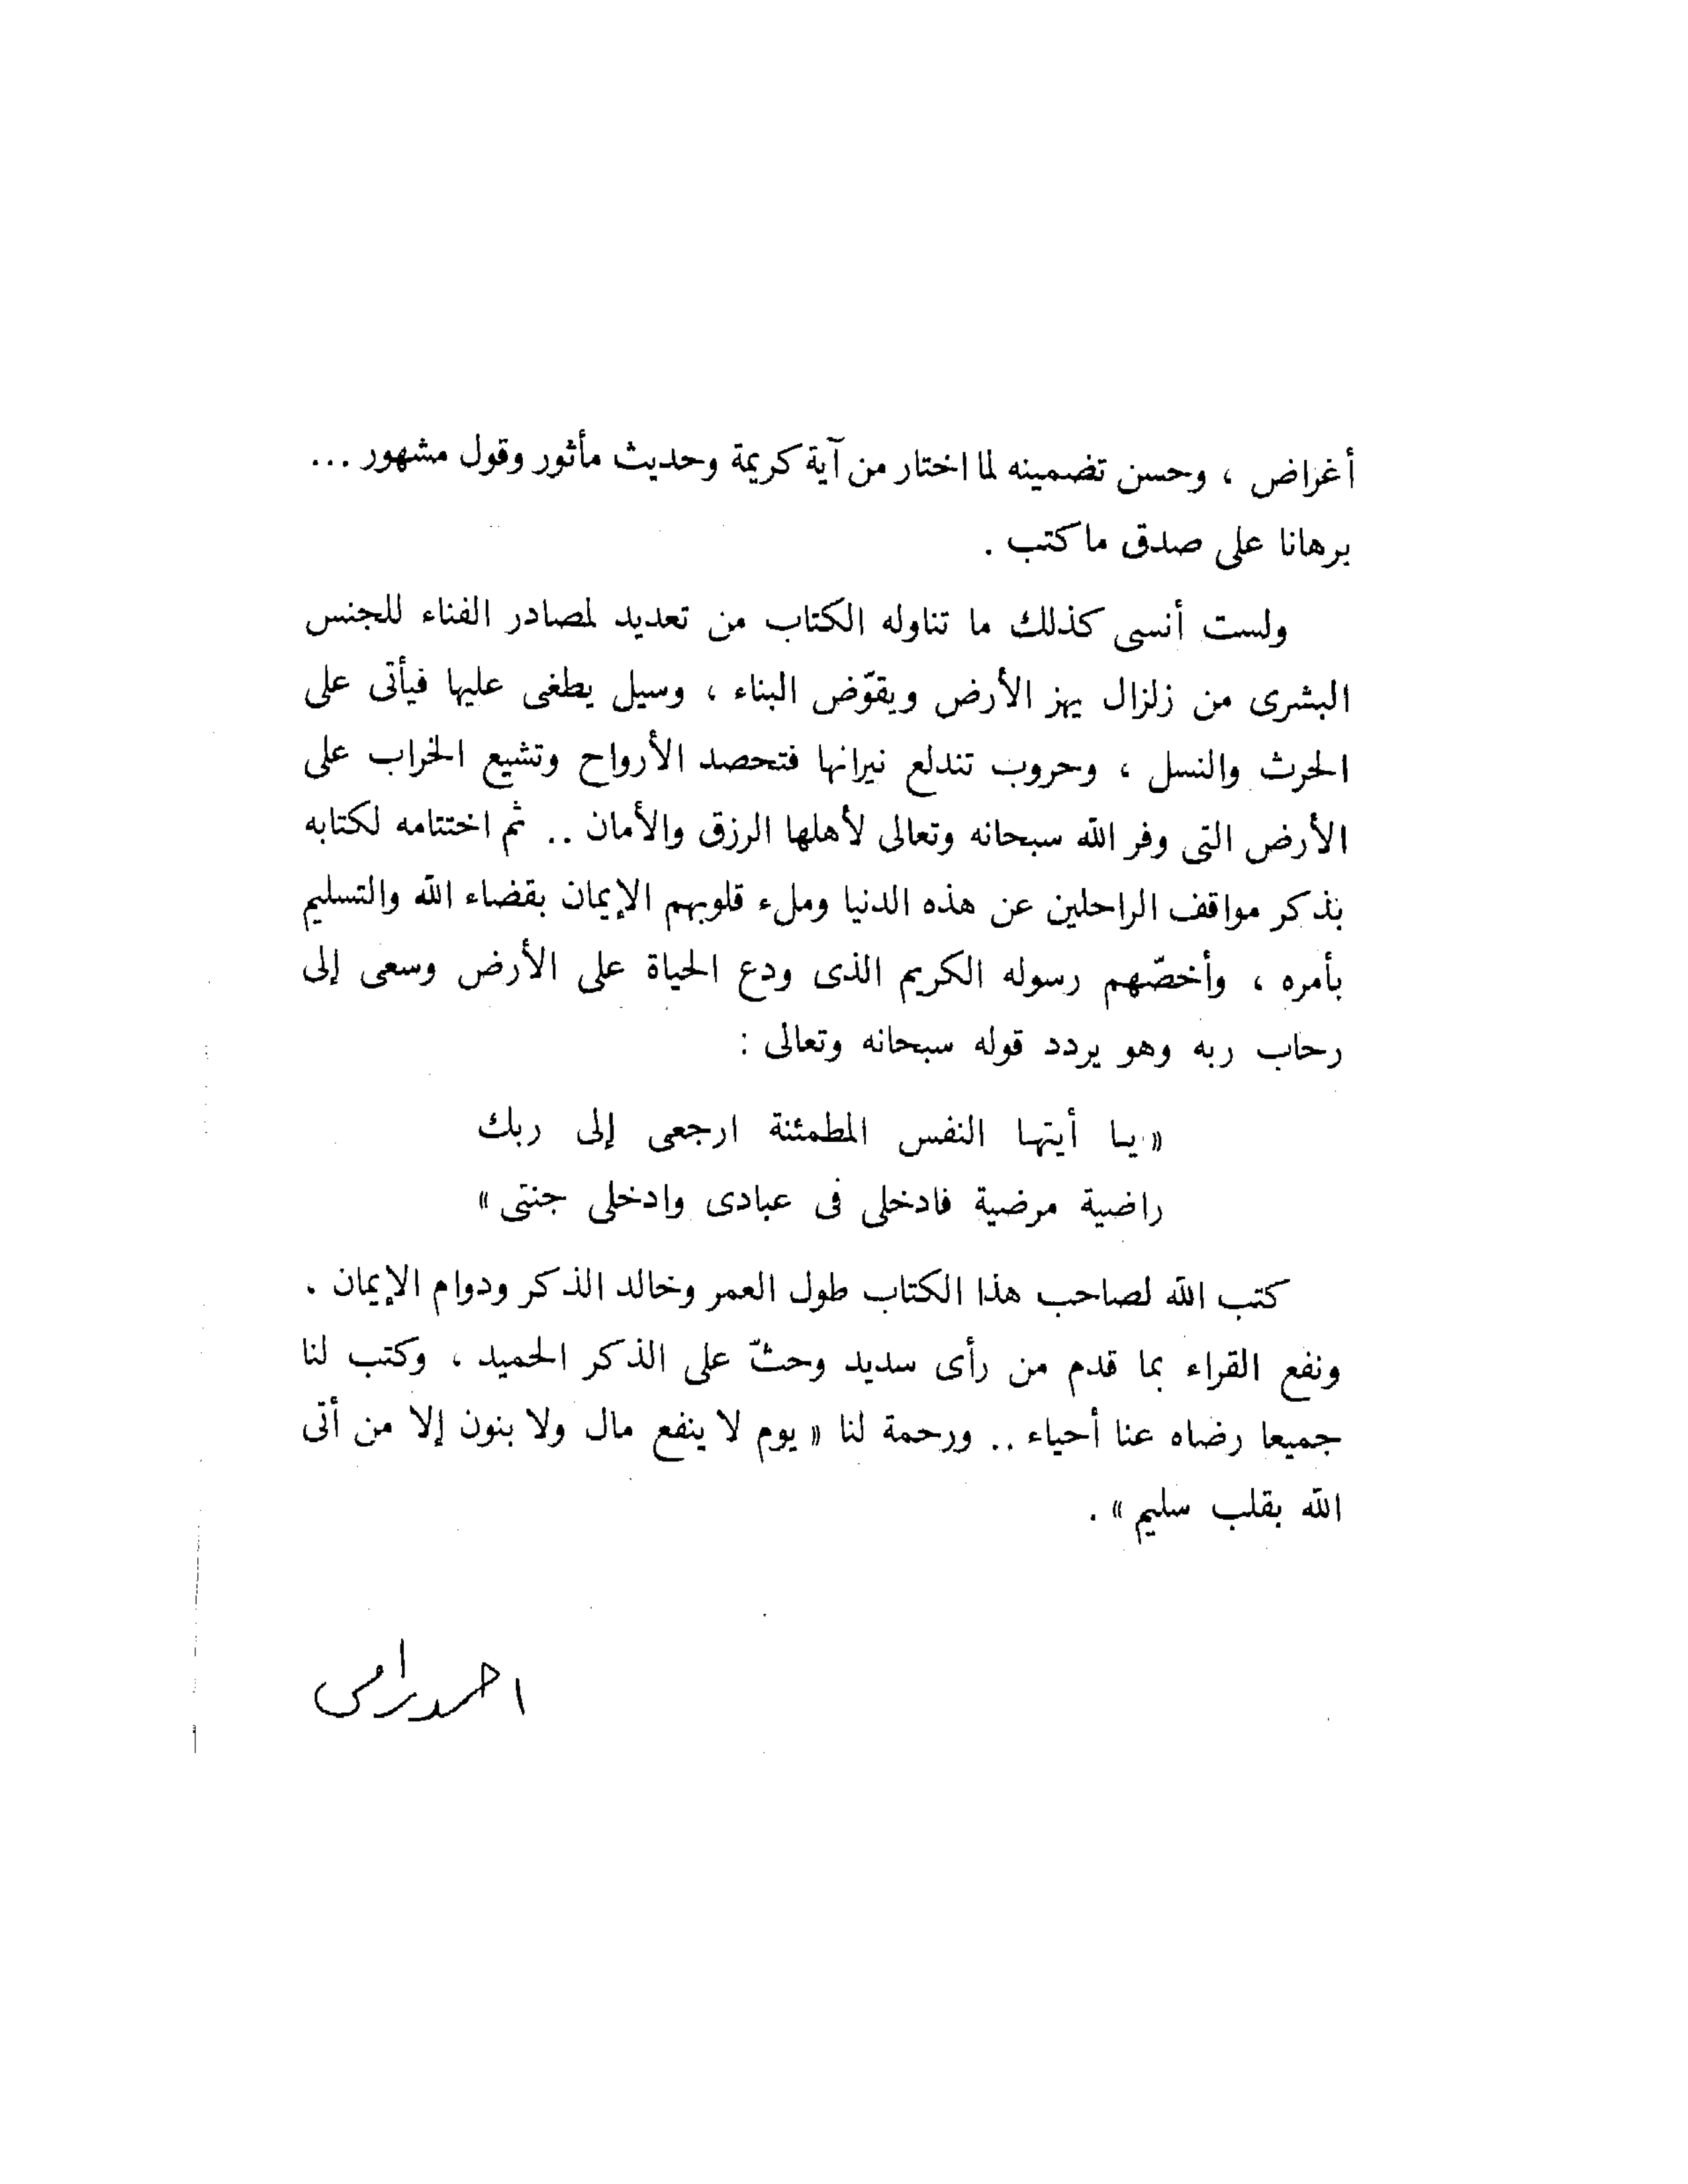 أغراض ، وحسن تضمينه لما اختار من آية كريمة وحديث مأثور وقول مشهور ...
برهانا على صدق ما كتب .
ولست أنسى كذلك ما تناوله الكتاب من تعديد لمصادر الفناء للجنس
البشرى من زلزال يهز الأرض ويقوّض البناء ، وسيل يطغى عليها فيأتى على
الحرث والنسل ، وحروب تندلع نيرانها فتحصد الأرواح وتشيع الخراب على
الأرض التى وفر الله سبحانه وتعالى لأهلها الرزق والأمان .. ثم اختتامه لكتابه
بذكر مواقف الراحلين عن هذه الدنيا وملء قلوبهم الإيمان بقضاء الله والتسليم
بأمره ، وأخصّهم رسوله الكريم الذى ودع الحياة على الأرض وسعى إلى
رحاب ربه وهو يردد قوله سبحانه وتعالى :
« يا أيتها النفس المطمئنة ارجعى إلى ربك
راضية مرضية فادخلى فى عبادى وادخلى جنتى »
كتب الله لصاحب هذا الكتاب طول العمر وخالد الذكر ودوام الإيمان .
ونفع القراء بما قدم من رأى سديد وحثّ على الذكر الحميد ، وكتب لنا
جميعا رضاه عنا أحياء .. ورحمة لنا « يوم لا ينفع مال ولا بنون إلا من أتى
الله بقلب سليم » .
احمد رامى